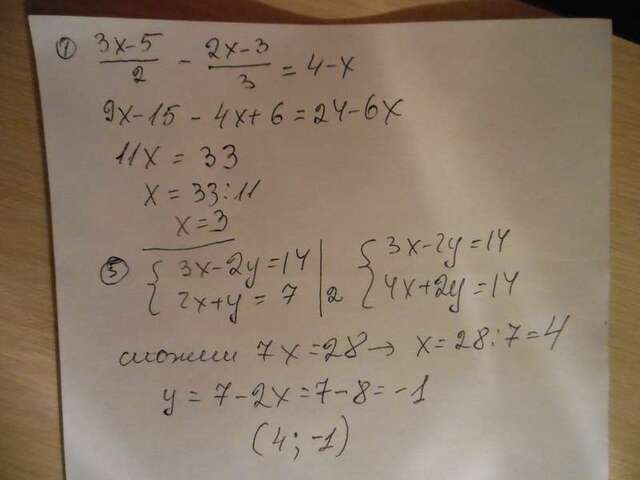 ① (3x-5)/2 - (2x-3)/3 = 4-x
9x-15 - 4x+6 = 24-6x
11x = 33
x = 33:11
x=3
⑤ { 3x-2y=14 | { 3x-2y=14
{ 2x+y = 7 | 2 { 4x+2y=14
сложили 7x=28 → x=28:7=4
y = 7-2x=7-8=-1
(4; -1)